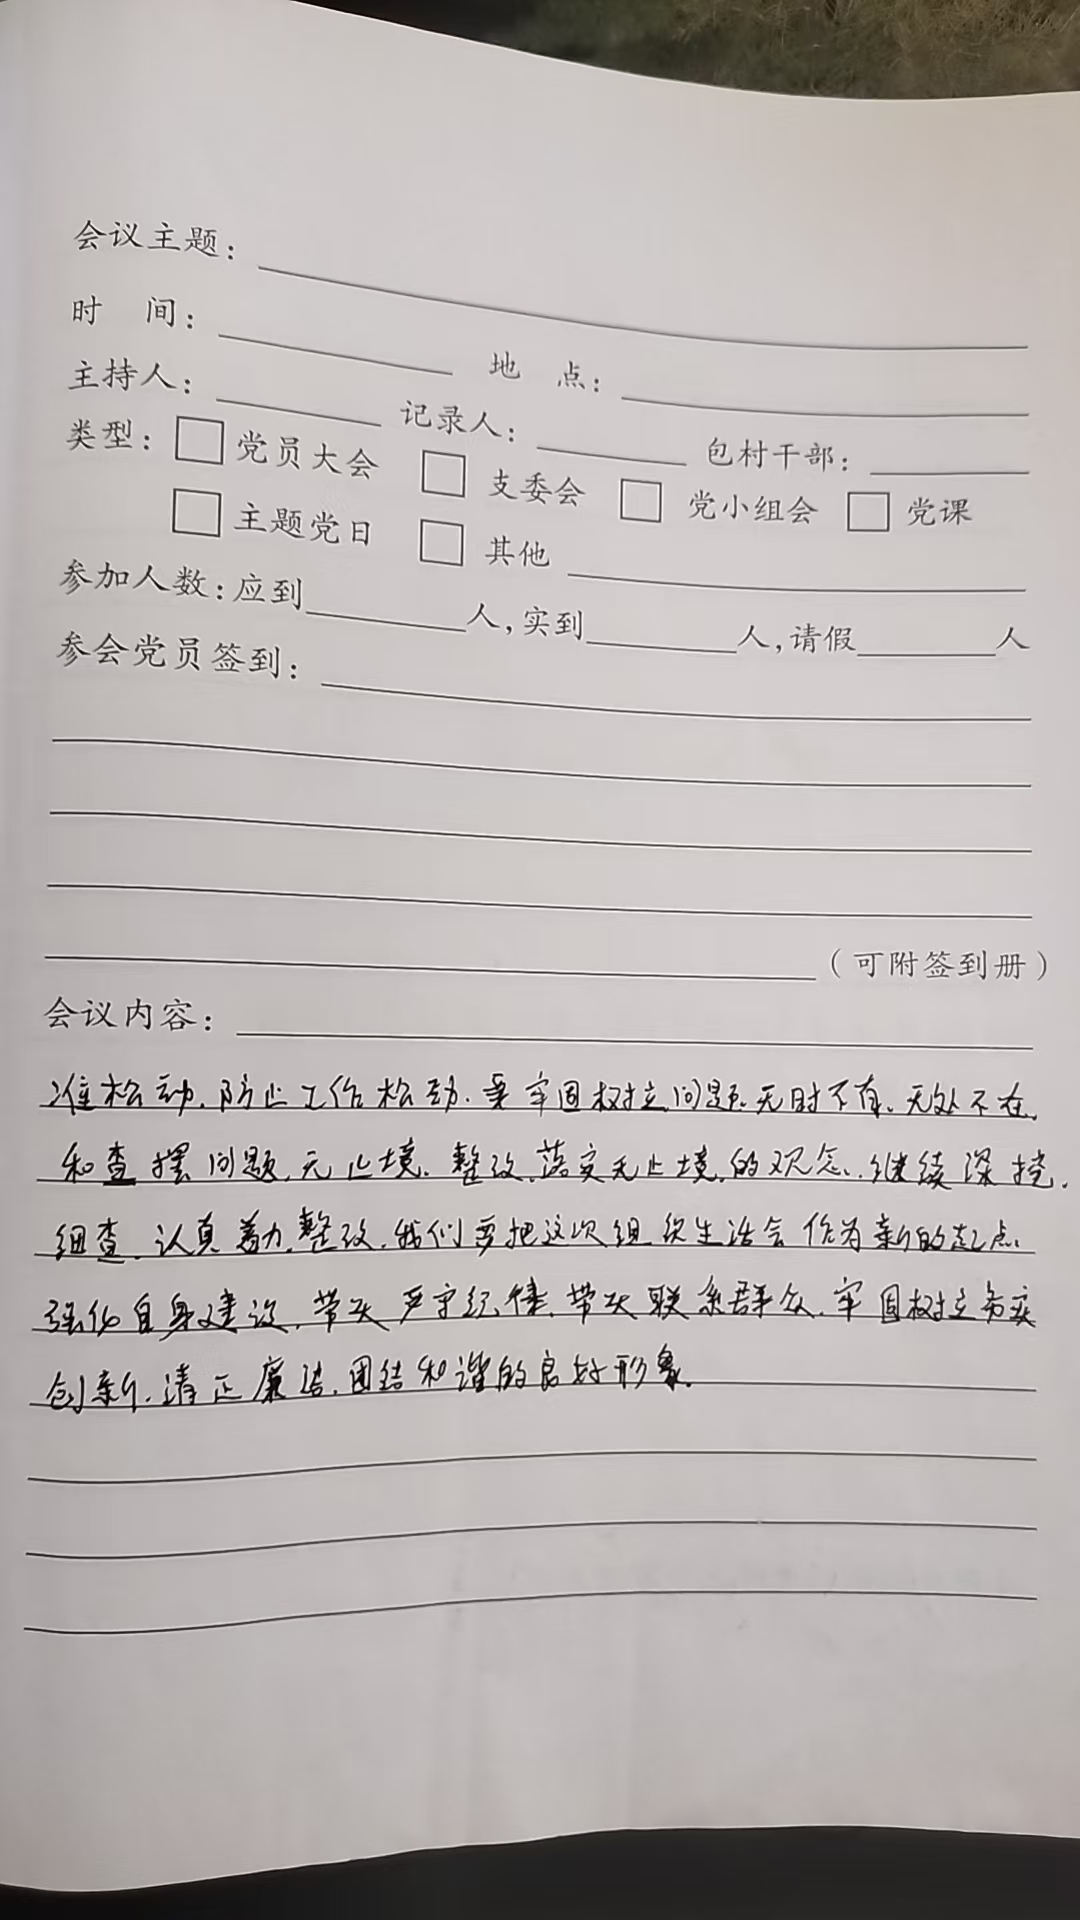 会议主题:
时 间: 地 点:
主持人: 记录人: 包村干部:
类型: 党员大会 支委会 党小组会 党课
主题党日 其他
参加人数:应到 人,实到 人,请假 人
参会党员签到:
(可附签到册)
会议内容:
准松动.防止工作松劲.要牢固树立问题.无时不有.无处不在.
和查摆问题.无止境.整改.落实无止境.的观念.继续深挖.
细查.认真着力.整改.我们要把这次组织生活会作为新的起点.
强化自身建设.带头严守纪律.带头联系群众.牢固树立务实
创新.清正廉洁.团结和谐的良好形象.